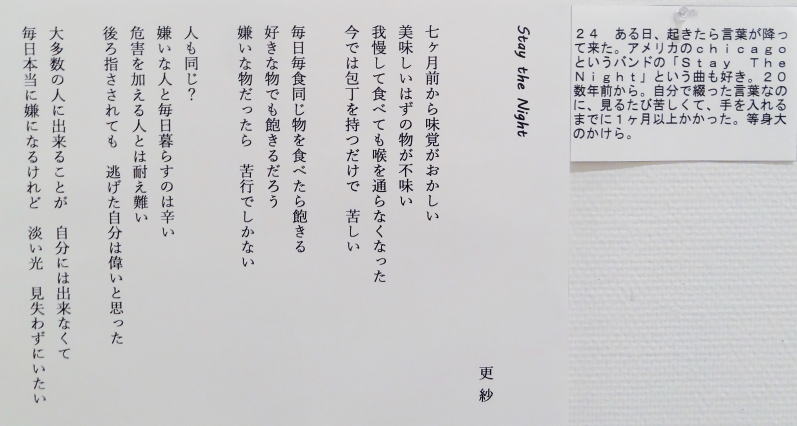 Stay the Night
更紗
七ヶ月前から味覚がおかしい
美味しいはずの物が不味い
我慢して食べても喉を通らなくなった
今では包丁を持つだけで　苦しい
毎日毎食同じ物を食べたら飽きる
好きな物でも飽きるだろう
嫌いな物だったら　苦行でしかない
人も同じ？
嫌いな人と毎日暮らすのは辛い
危害を加える人とは耐え難い
後ろ指さされても　逃げた自分は偉いと思った
大多数の人に出来ることが　自分には出来なくて
毎日本当に嫌になるけれど　淡い光　見失わずにいたい
２４　ある日、起きたら言葉が降っ
て来た。アメリカのｃｈｉｃａｇｏ
というバンドの「Ｓｔａｙ　Ｔｈｅ
Ｎｉｇｈｔ」という曲も好き。２０
数年前から。自分で綴った言葉なの
に、見るたび苦しくて、手を入れる
までに１ヶ月以上かかった。等身大
のかけら。